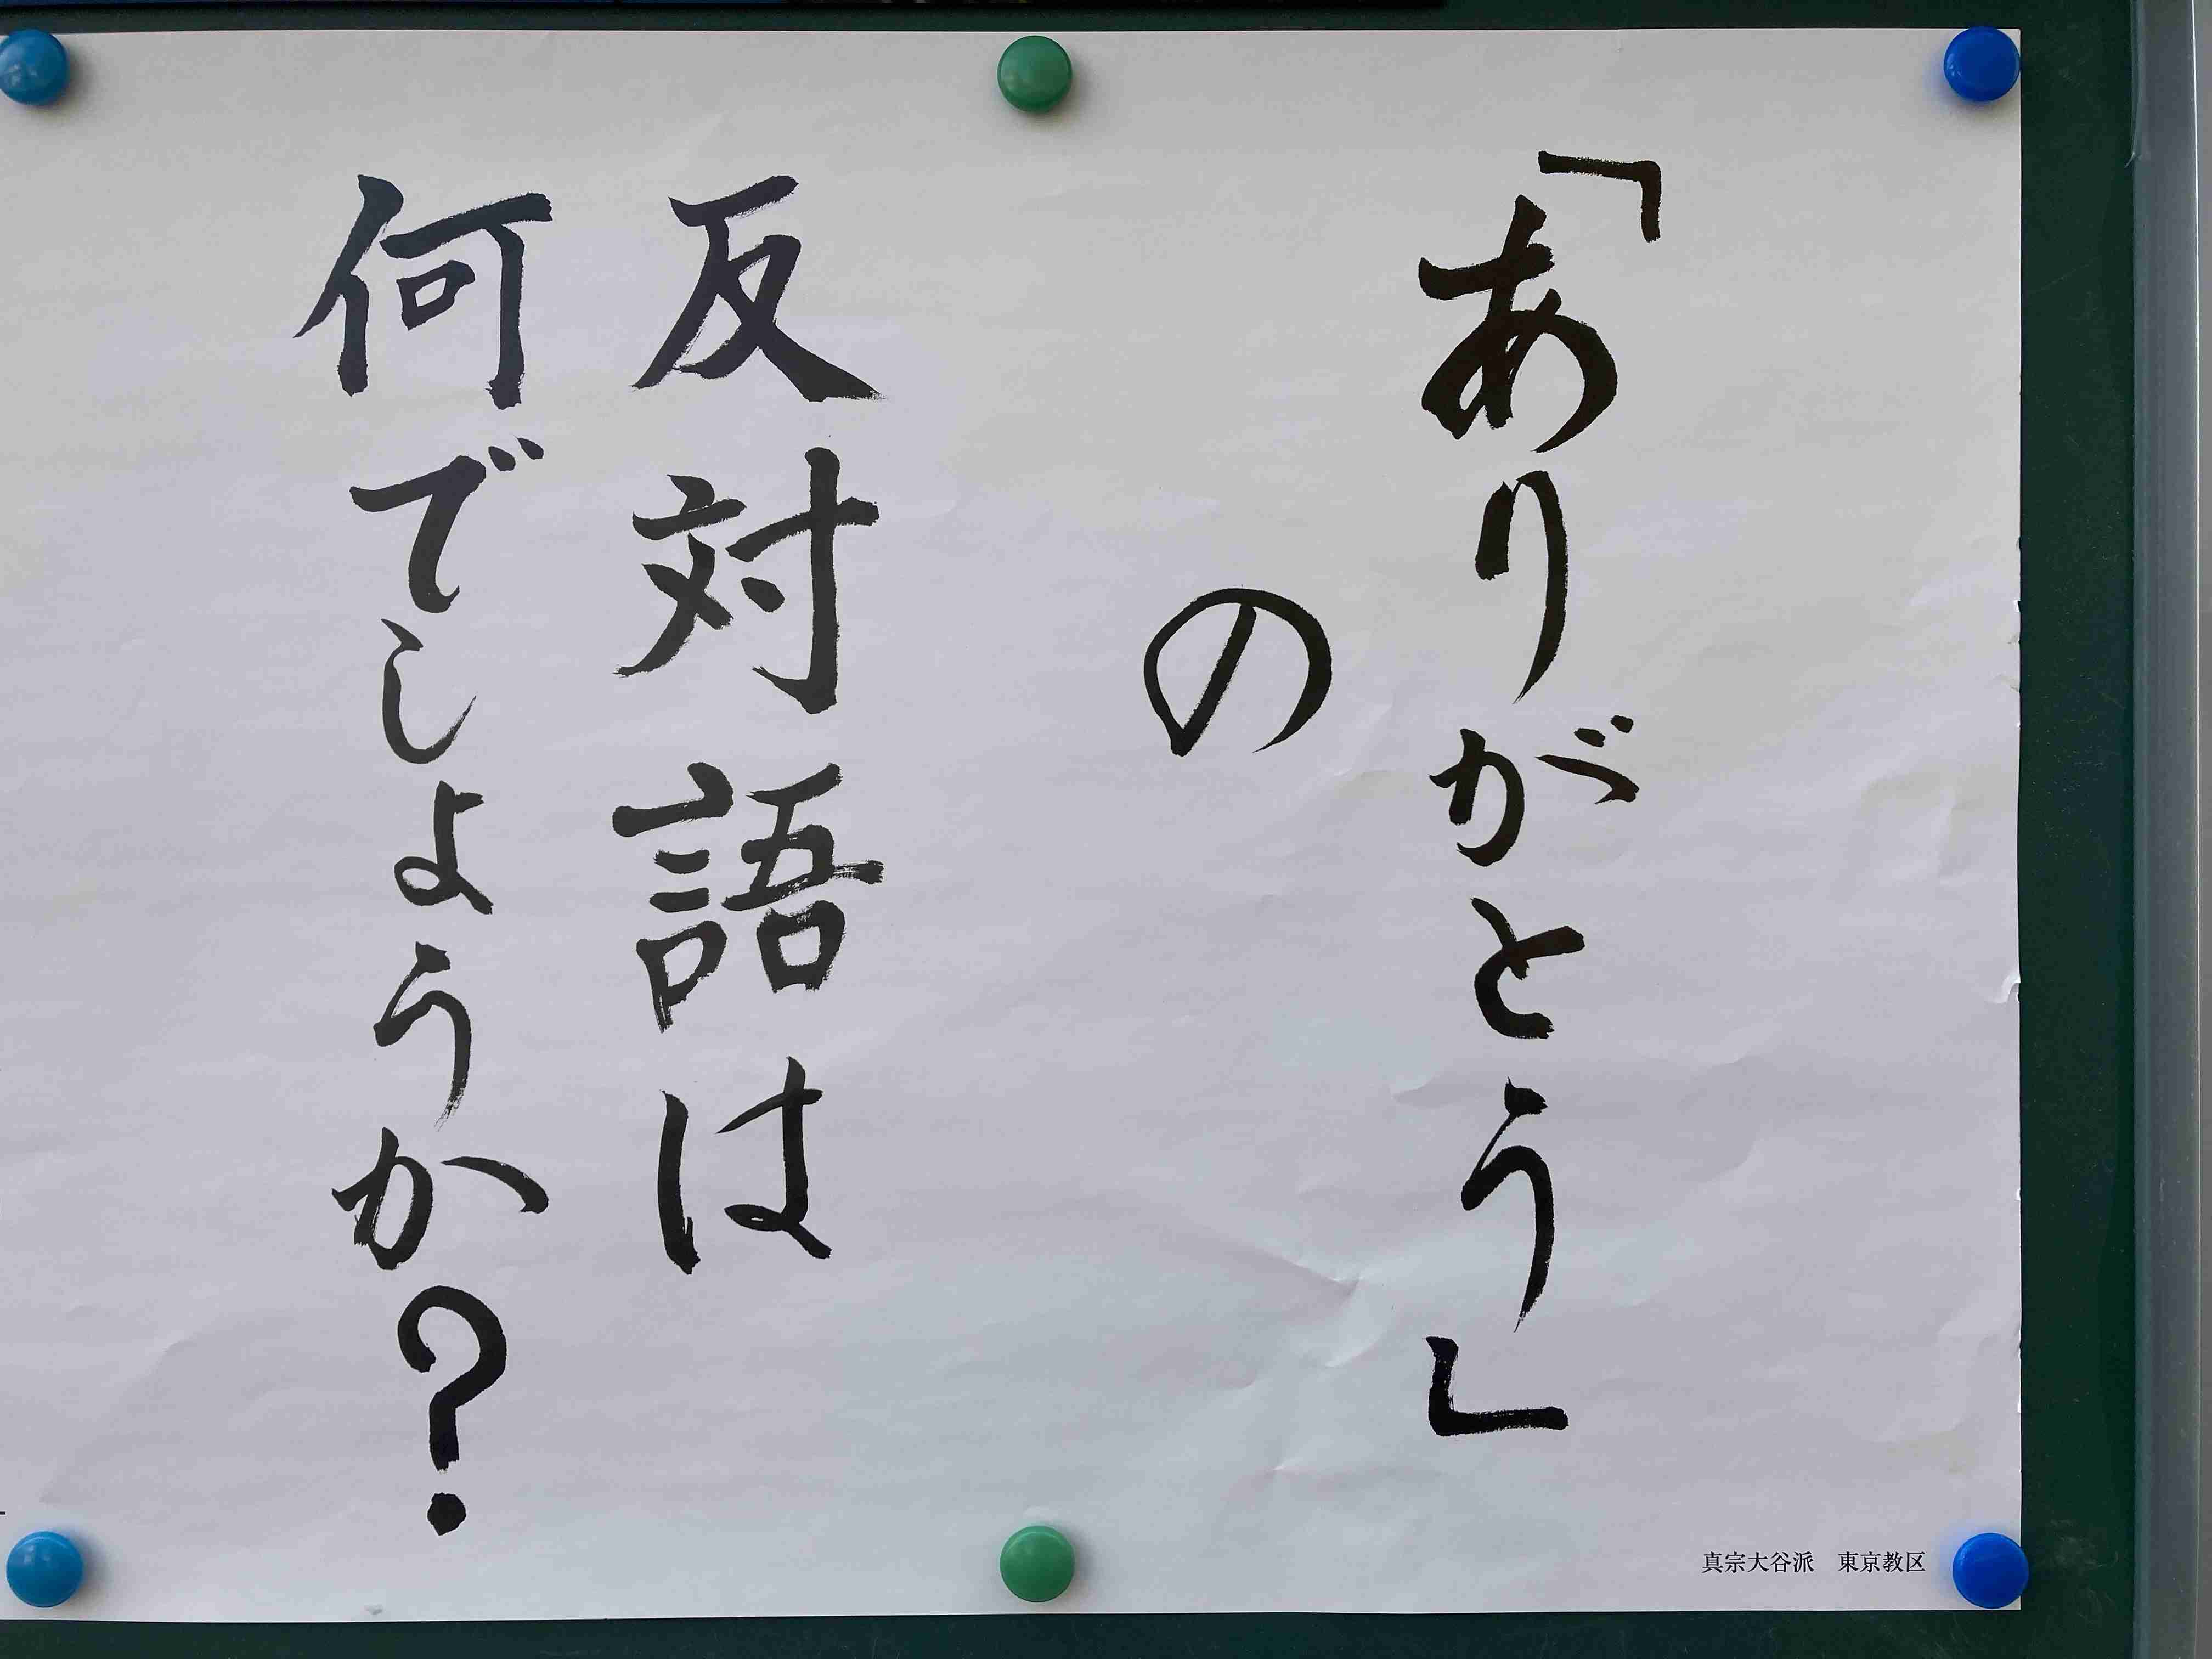 「ありがとう」
の
反対語は
何でしょうか?
真宗大谷派　東京教区